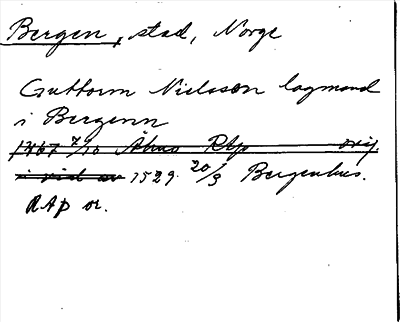 Bergen, stad, Norge
Guttorm Nielsson lagmand
i Bergenn
1467 7/10 Åbus RAp orig.
i vid av 1529 20/9 Bergenhus.
RAp or.